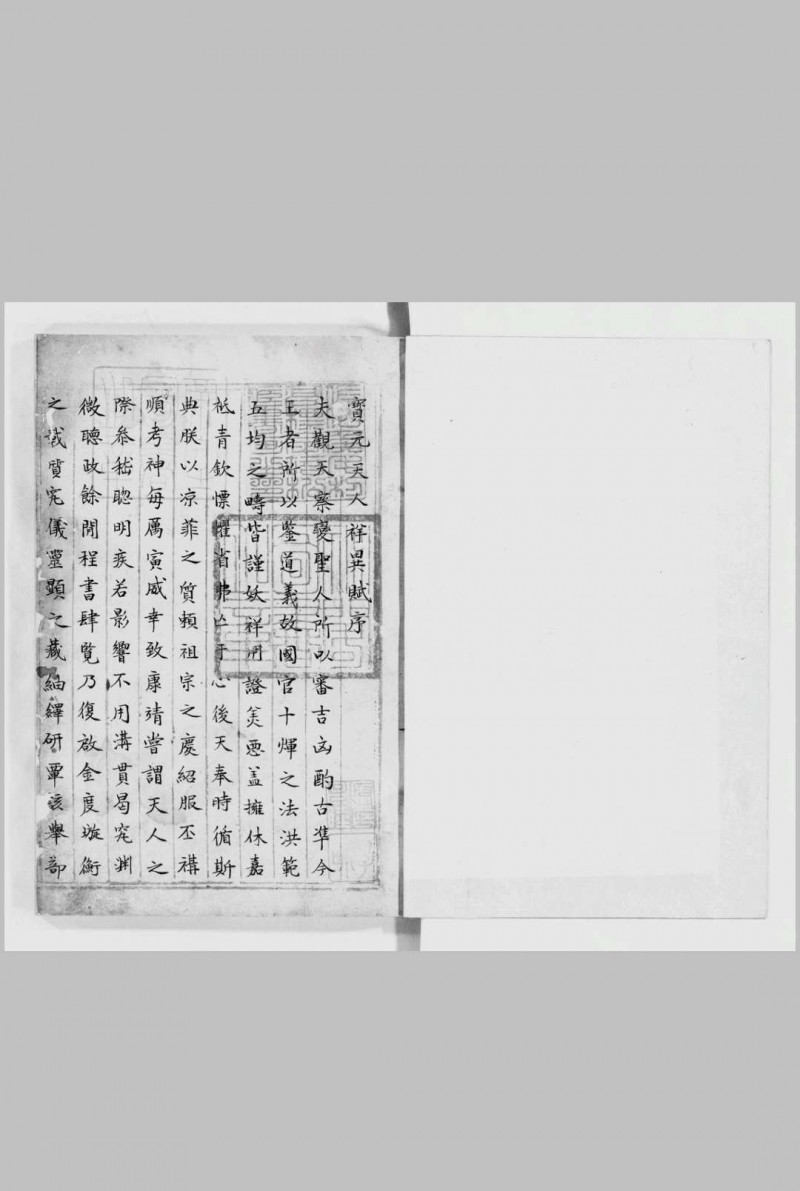 寳元天人祥異賦序
夫觀天察變聖人所以審吉凶酌古準今
王者所以鑒道義故國官十煇之法洪範
五均之疇皆謹妖祥用證美惡盖擁休嘉
祗青欽慄懼省弗亡于心後天奉時循斯
典朕以凉菲之質頼祖宗之慶紹服丕禩
順考神每厲寅威幸致康靖嘗謂天人之
際叅嵇聦明疾若影響不用溝貫曷究渊
微聽政餘閒程書肆覧乃復啟金度璇衡
之賾究儀靈顕之蔵紬繹研覃該舉部